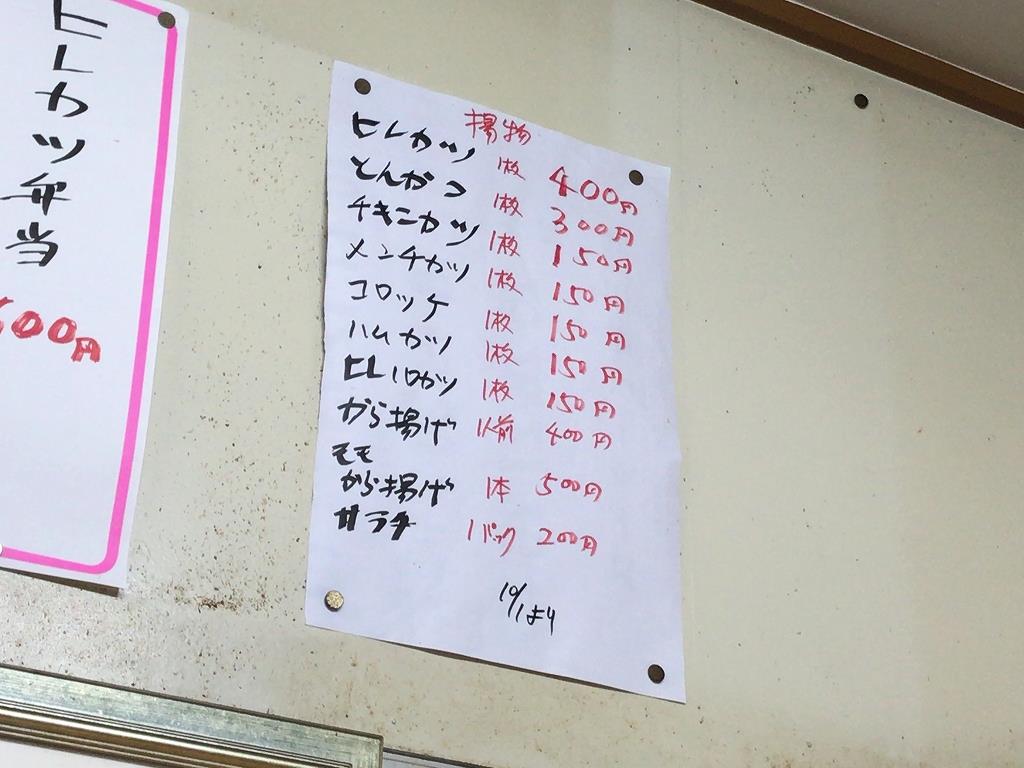 ヒレカツ弁当
600円
揚物
ヒレカツ 1枚 400円
とんかつ 1枚 300円
チキンカツ 1枚 150円
メンチカツ 1枚 150円
コロッケ 1枚 150円
ハムカツ 1枚 150円
ヒレ1口カツ 1枚 150円
から揚げ 1人前 400円
モモ
から揚げ 1本 500円
サラダ 1パック 200円
10/1より